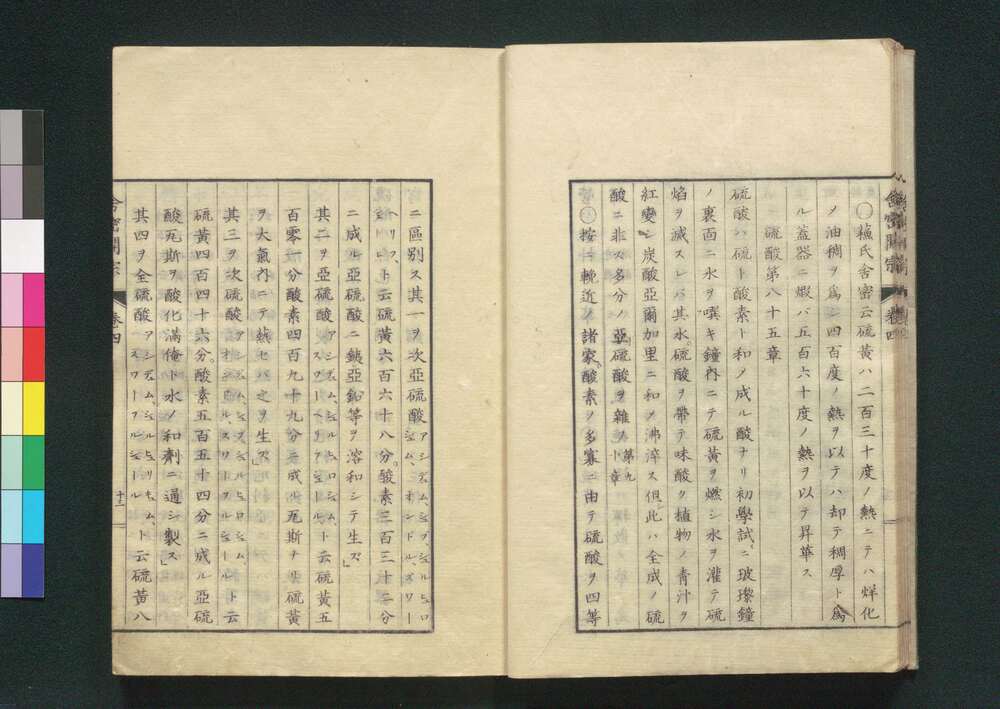 舎密開宗 巻四
〇穐氏舎密云硫黄ハ二百三十度ノ熱ニテハ烊化
ノ油稠ヲ為シ四百度ノ熱ヲ以テハ却テ稠厚ト為
ル蓋器ニ蝦バ五百六十度ノ熱ヲ以テ昇華ス
硫酸第八十五章
硫酸ハ硫ト酸素ト和メ成ル酸ナリ初學試ニ玻瓈鐘
ノ裏面ニ水ヲ噀キ鐘内ニテ硫黄ヲ燃シ水ヲ灌テ硫
焰ヲ滅スレバ其水硫酸ヲ帯テ味酸ク植物ノ青汁ヲ
紅變シ炭酸亞爾加里ニ和メ沸淬ス但此ハ全成ノ硫
酸ニ非ス多分ノ亞硫酸ヲ雜ヲ第九十章
〇按ニ輓近ノ諸家酸素ノ多寡ニ由テ硫酸ヲ四等
ニ區別ス其一ヲ次亞硫酸
ト云硫黄六百六十八分酸素三百三十二分
ニ成ル亞硫酸ニ鉄亞鉛等ヲ溶和シテ生ズ
其二ヲ亞硫酸 ト云硫黄五
百零一分酸素四百九十九分ニ成 瓦斯ナリ硫黄
ヲ大氣内ニテ爇セバ之ヲ生ズ
其三ヲ次硫酸 ト云
硫黄四百四十六分酸素五百五十四分ニ成ル亞硫
酸瓦斯ヲ酸化滿俺ト水ノ和劑ニ通シ製ス
其四ヲ全硫酸 ト云硫黄八
舎密開宗 巻四 十二